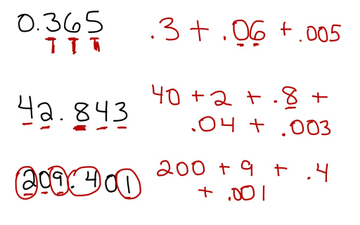 0.365
.3 + .06 + .005
42.843
40 + 2 + .8 +
.04 + .003
209.401
200 + 9 + .4
+ .001